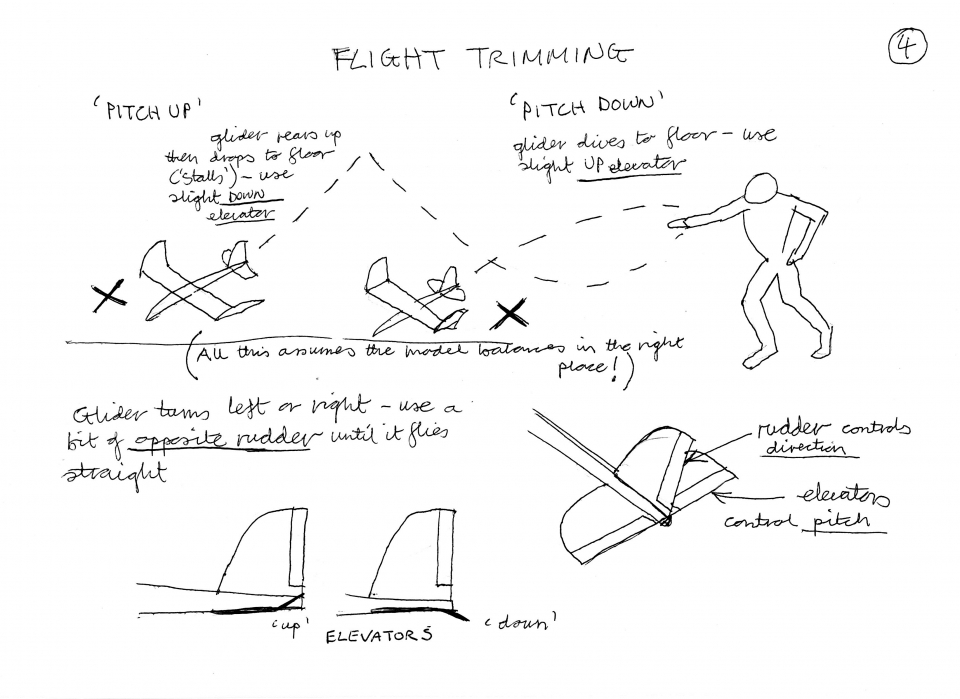 FLIGHT TRIMMING
4
'PITCH UP'
glider rears up
then drops to floor
('stalls') - use
slight DOWN
elevator
'PITCH DOWN'
glider dives to floor - use
slight UP elevator
(All this assumes the model balances in the right
place!)
Glider turns left or right - use a
bit of opposite rudder until it flies
straight
rudder controls
direction
elevators
control pitch
'up'
ELEVATORS
'down'